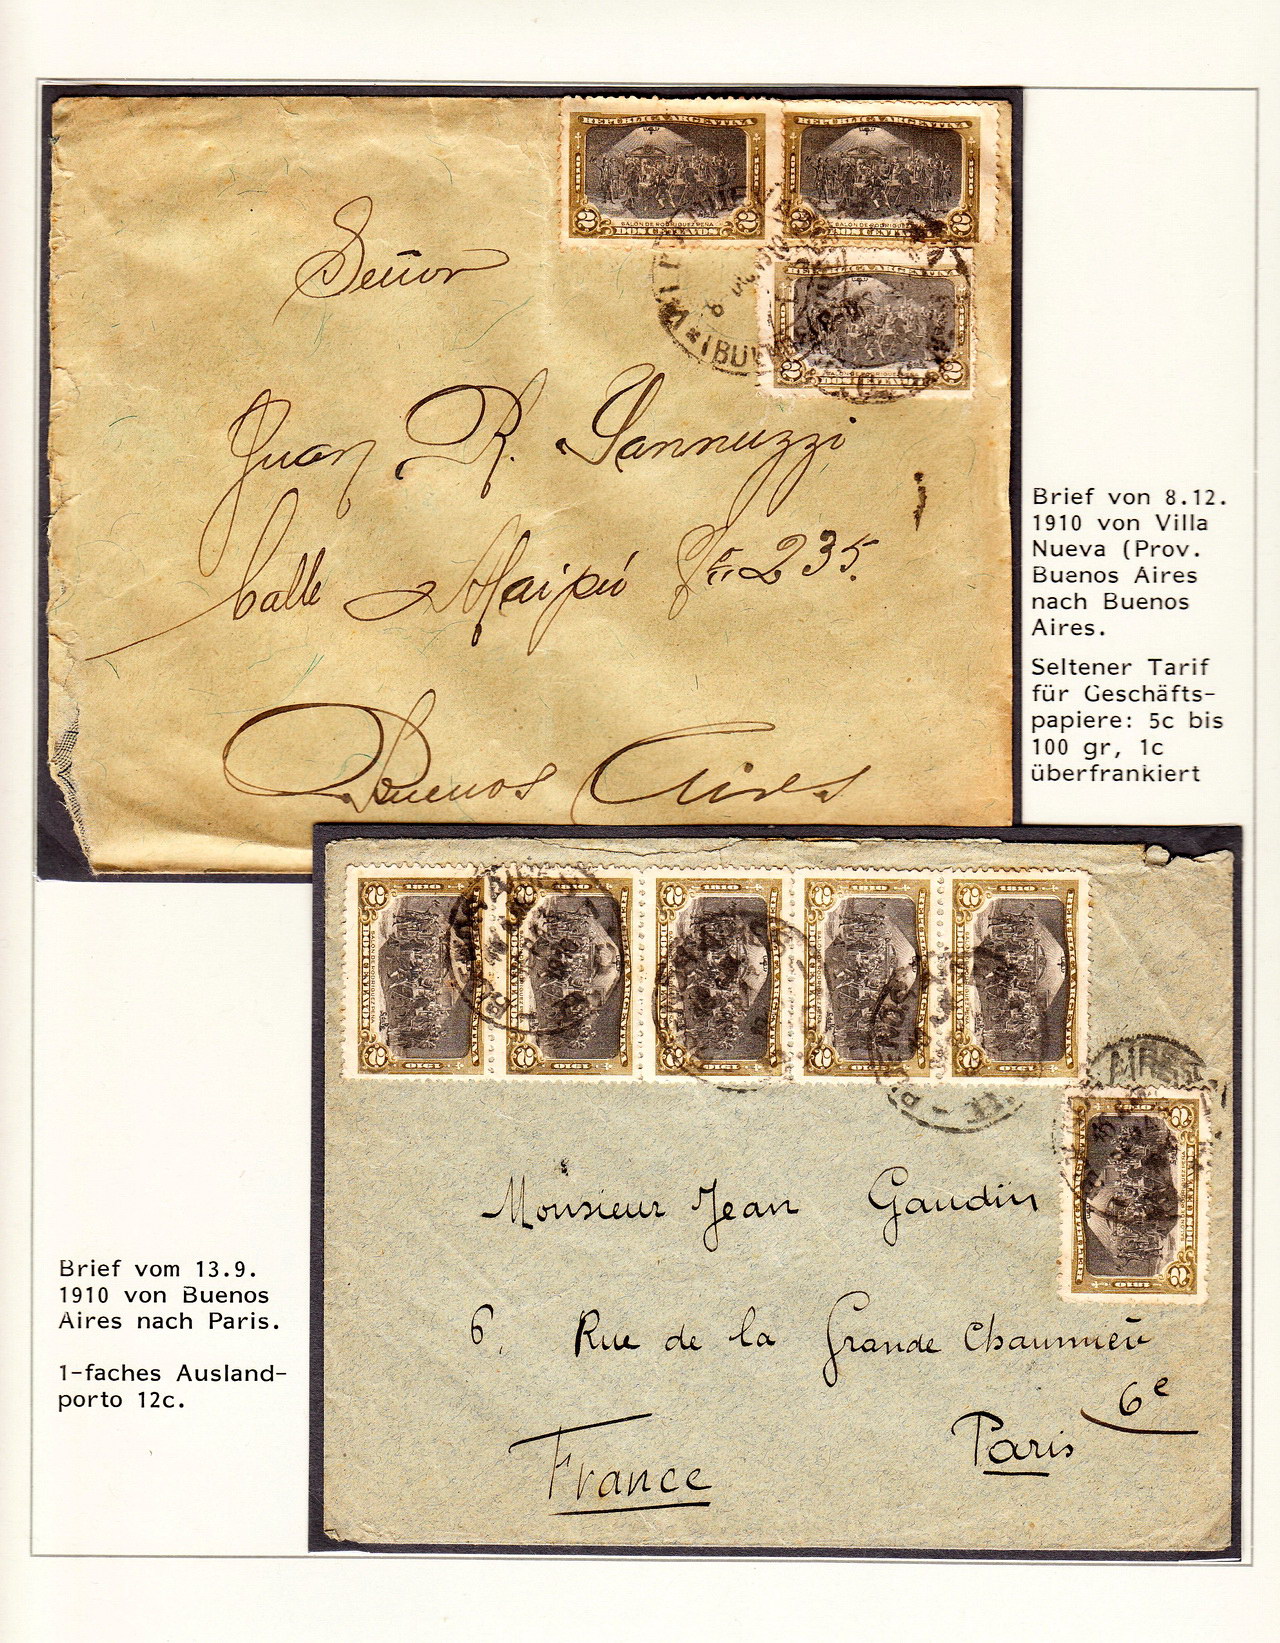 REPUBLICA ARGENTINA
REPUBLICA ARGENTINA
1810
1910
SALON DE RODRIGUEZ PEÑA
2 DOS CENTAVOS 2
2 DOS CENTAVOS 2
REPUBLICA ARGENTINA
2 DOS CENTAVOS 2
Señor
Juan R. Iannuzzi
Calle Maipú No. 235.
Buenos Aires
Brief von 8.12.
1910 von Villa
Nueva (Prov.
Buenos Aires
nach Buenos
Aires.
Seltener Tarif
für Geschäfts-
papiere: 5c bis
100 gr, 1c
überfrankiert
Monsieur Jean Gaudin
6, Rue de la Grande Chaumière
6e
Paris
France
Brief vom 13.9.
1910 von Buenos
Aires nach Paris.
1-faches Ausland-
porto 12c.